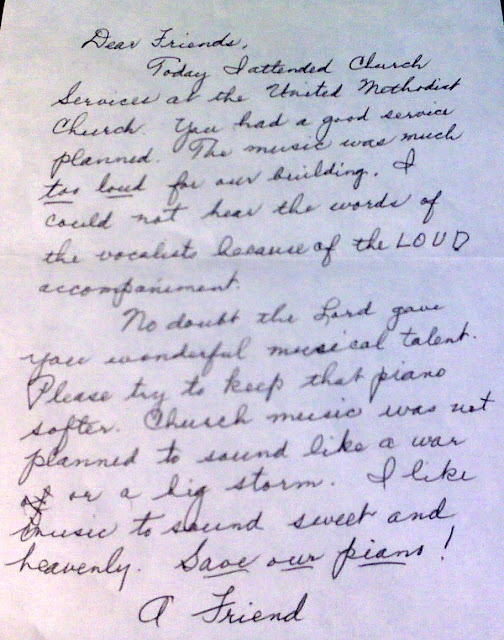 Dear Friends,
Today I attended Church
Services at the United Methodist
Church. You had a good service
planned. The music was much
too loud for our building. I
could not hear the words of
the vocalists because of the LOUD
accompaniment.
No doubt the Lord gave
you wonderful musical talent.
Please try to keep that piano
softer. Church music was not
planned to sound like a war
or a big storm. I like
music to sound sweet and
heavenly. Save our piano!
A Friend